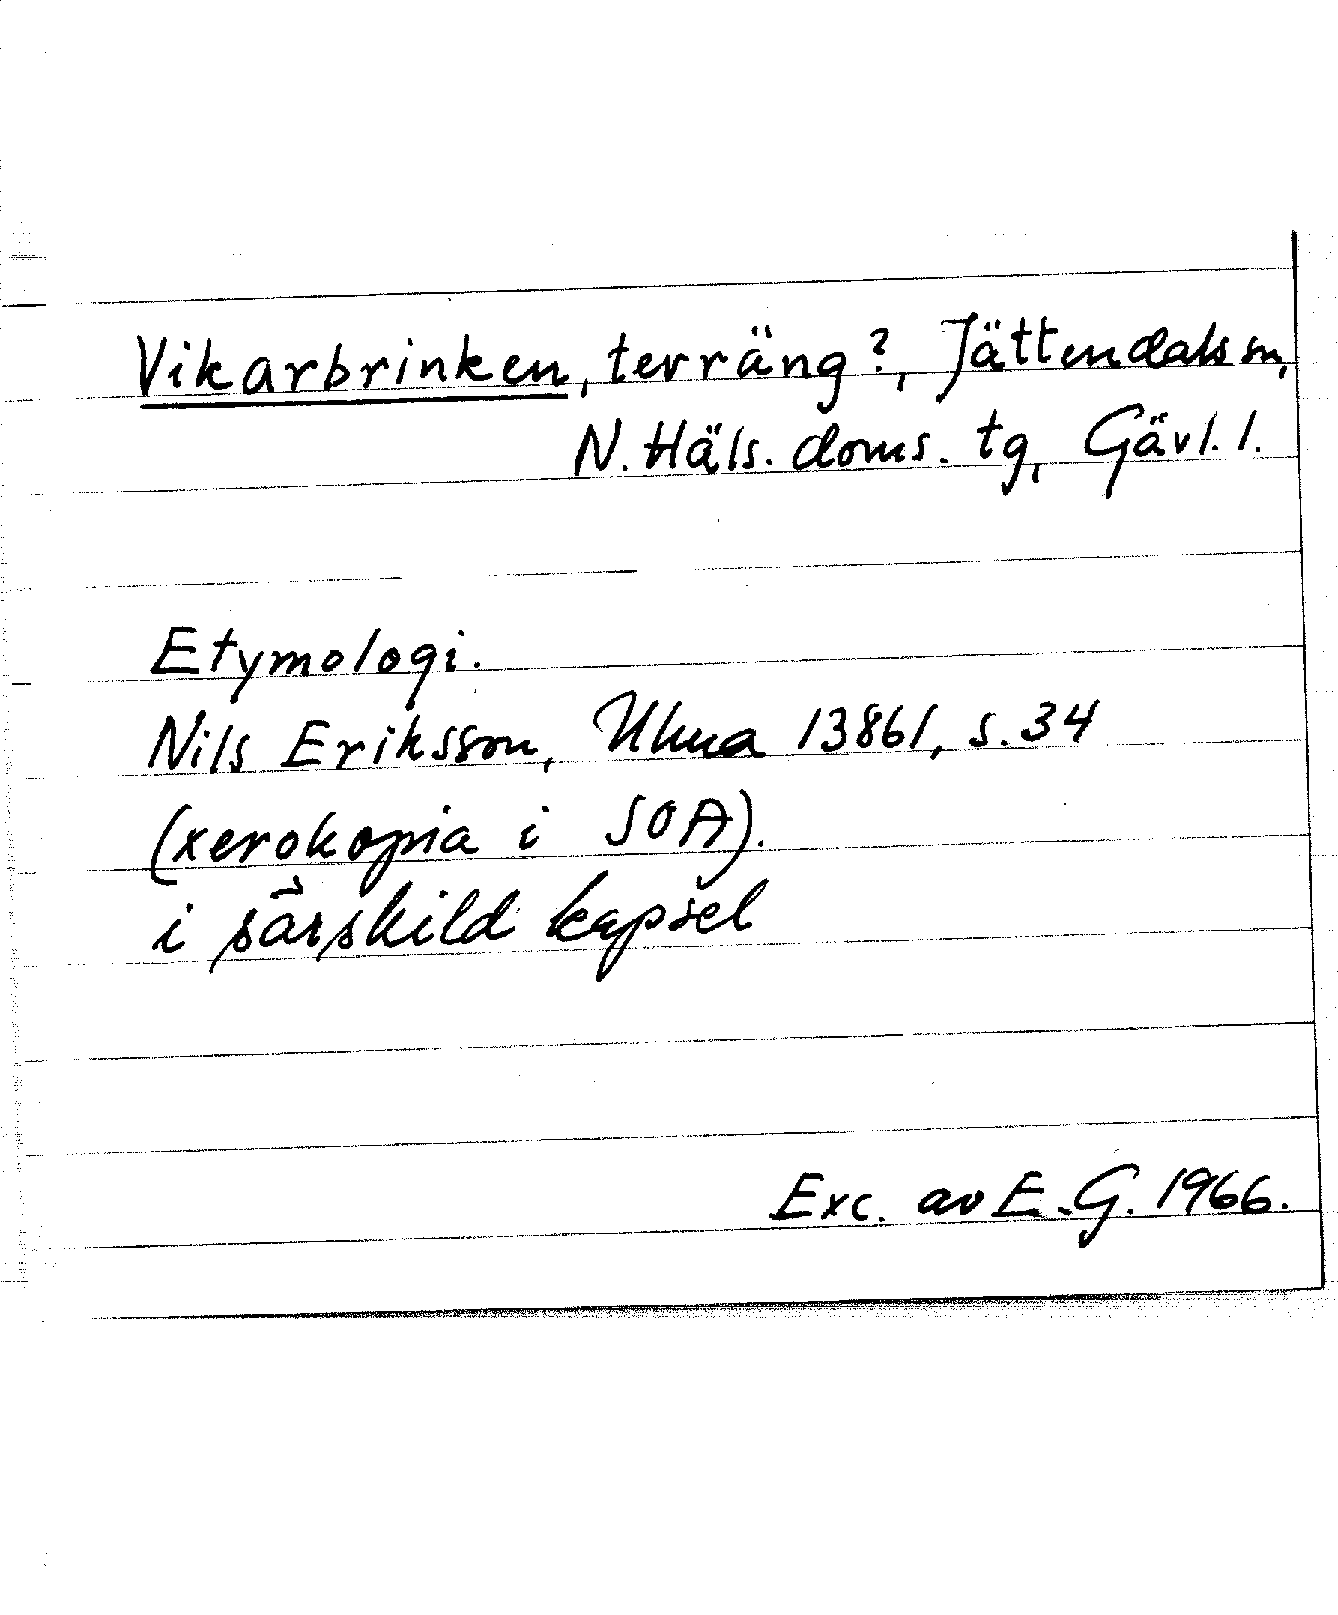 Vikarbrinken, terräng?, Jättendals sn,
N. Häls. doms. tg, Gävl. l.
Etymologi.
Nils Eriksson, Ulma 13861, s. 34
(xerokopia i SOA).
i särskild kapsel
Exc. av E.G. 1966.